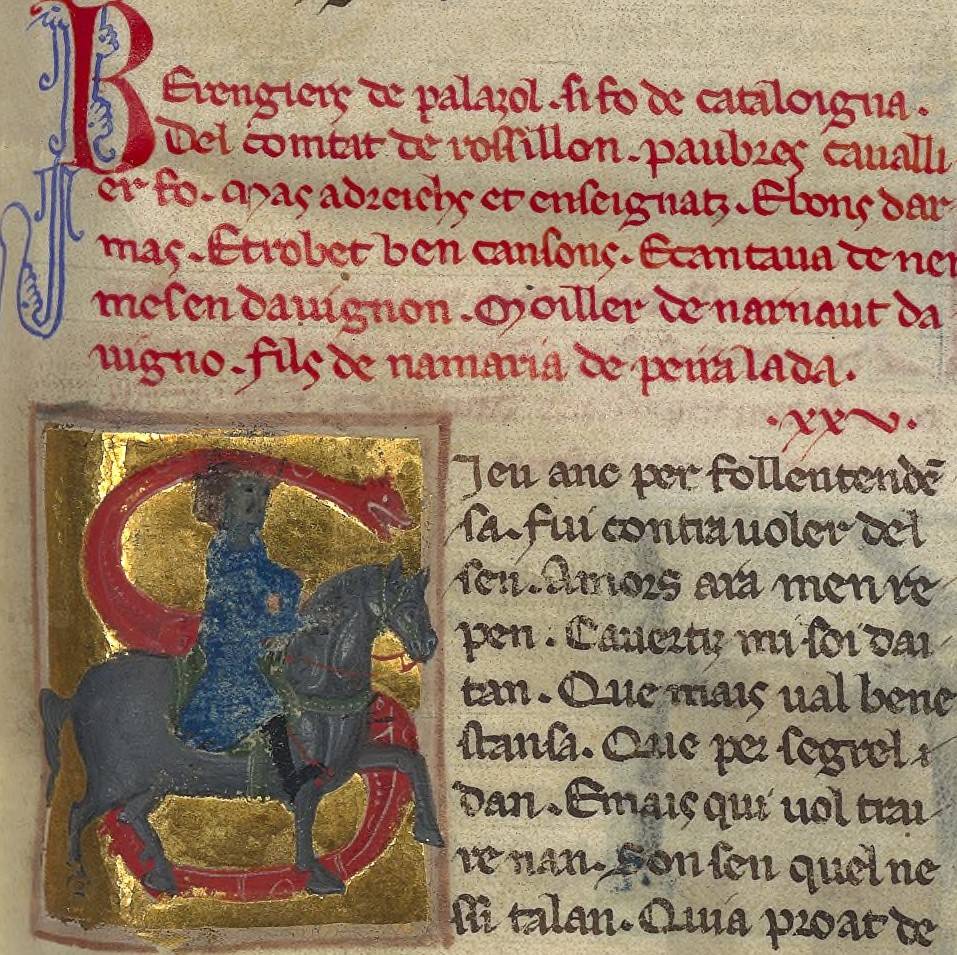 BErengiers de palazol. si fo de cataloigna.
Del comtat de rossillon. paubres cavalli
er fo. Mas adreichs et enseignatz. E bons dar
mas. Et trobet ben cansons. E cantaua de ner
mesen dauignon. Moiller de narnaut da
uigno. fils de na maria de peiralada.
.xxv.
SIeu anc per follentendē
sa. fui contra uoler del
sen. Amors ara men re
pen. Cauertz mi soi dai
tan. Que mais ual bene
stansa. Que per segre
dan. E mais qui uol trai
re nan. Son sen quel ne
ssi talan. Quia proat de